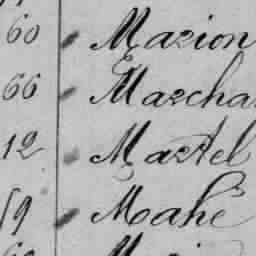 60 Marion
66 Marcha
12 Martel
59 Mahé